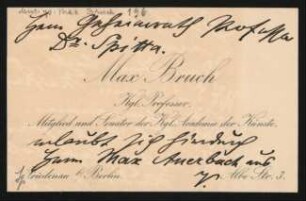 Herrn Geheimrath Professor
Dr. Spitta.
Max Bruch
Kgl. Professor
Mitglied und Senator der Kgl. Akademie der Künste,
erlaubt sich hierdurch
Herrn Max Auerbach aus
Friedenau b/Berlin. Albe-Str. 3.